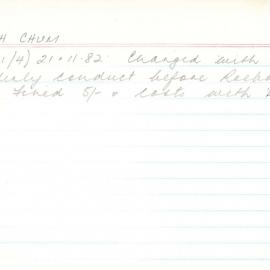 H CHUM
1/4) 21.11.82: Charged with
erly conduct before
Fined 5/- & costs with